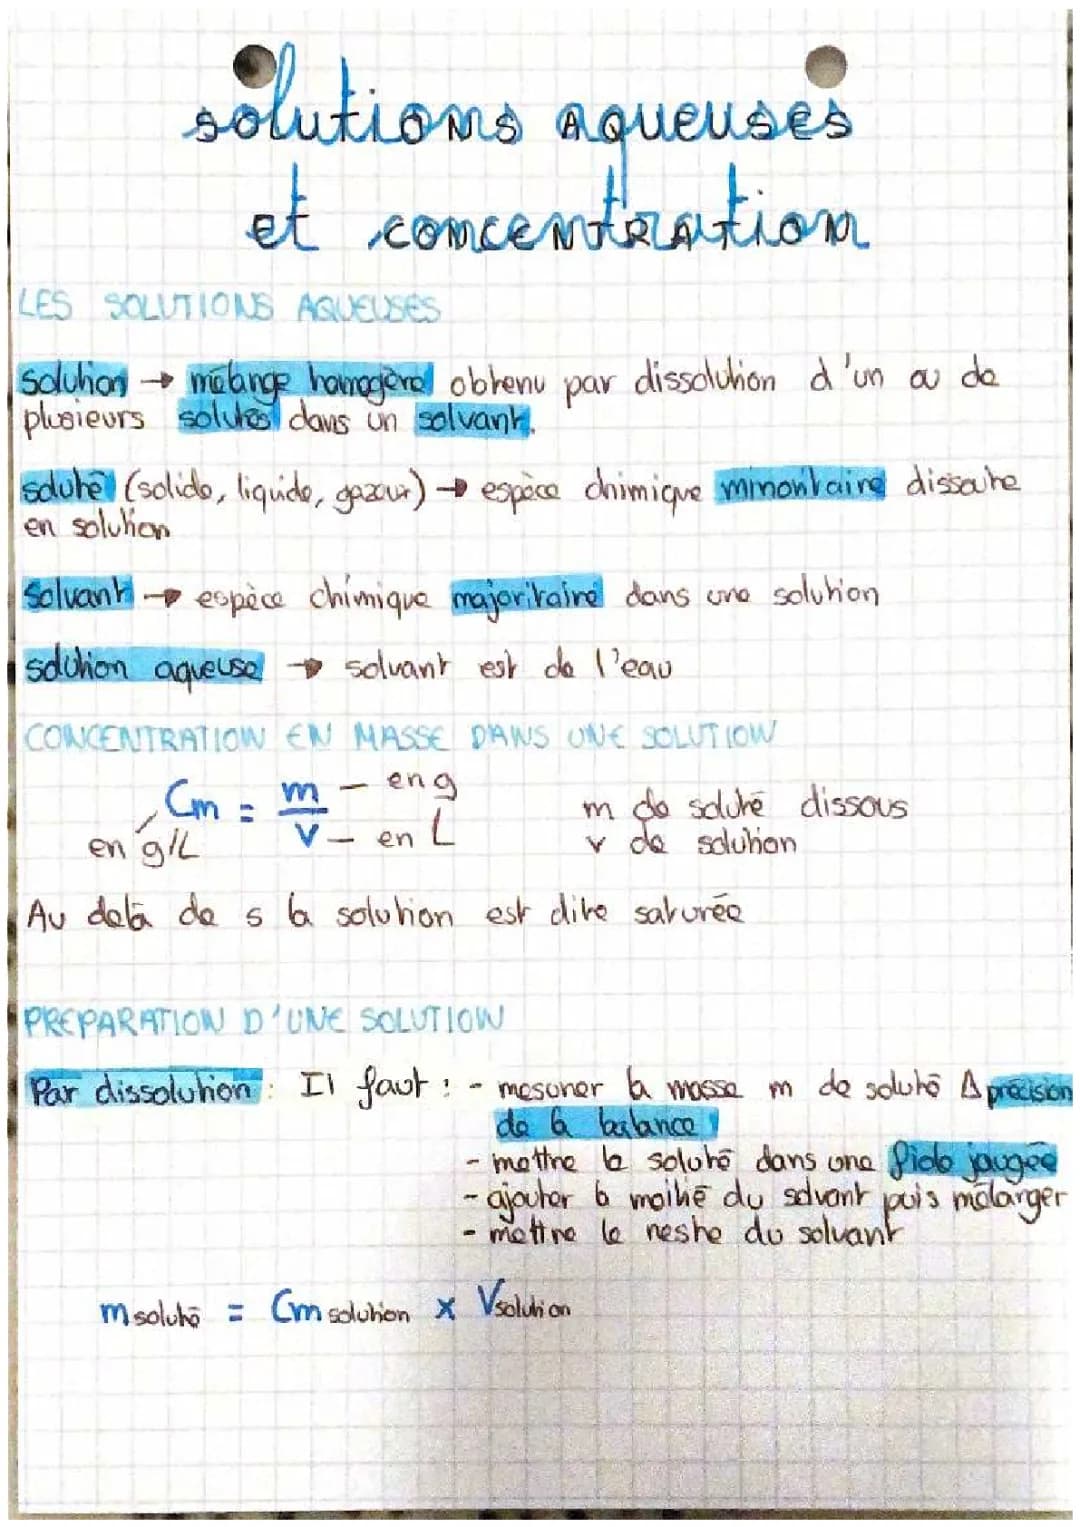 solutions aqueuses
et concentration
LES SOLUTIONS AQUEUSES
solution → mélange homogène obtenu par dissolution d'un ou de
plusieurs solutés dans un solvant.
soluté (solide, liquide, gazeux) → espèce chimique minoritaire dissoute
en solution
Solvant → espèce chimique majoritaire dans une solution
solution aqueuse → solvant est de l'eau
CONCENTRATION EN MASSE DANS UNE SOLUTION
Cm = m/V
en g/L
en g
en L
m de soluté dissous
v de solution
Au delà de s la solution est dite saturée
PREPARATION D'UNE SOLUTION
Par dissolution : Il faut : - mesurer la masse m de soluté Δ précision
de la balance
- mettre le soluté dans une fiole jaugée
- ajouter la moitié du solvant puis mélanger
- mettre le reste du solvant
m soluté = Cm solution × V solution